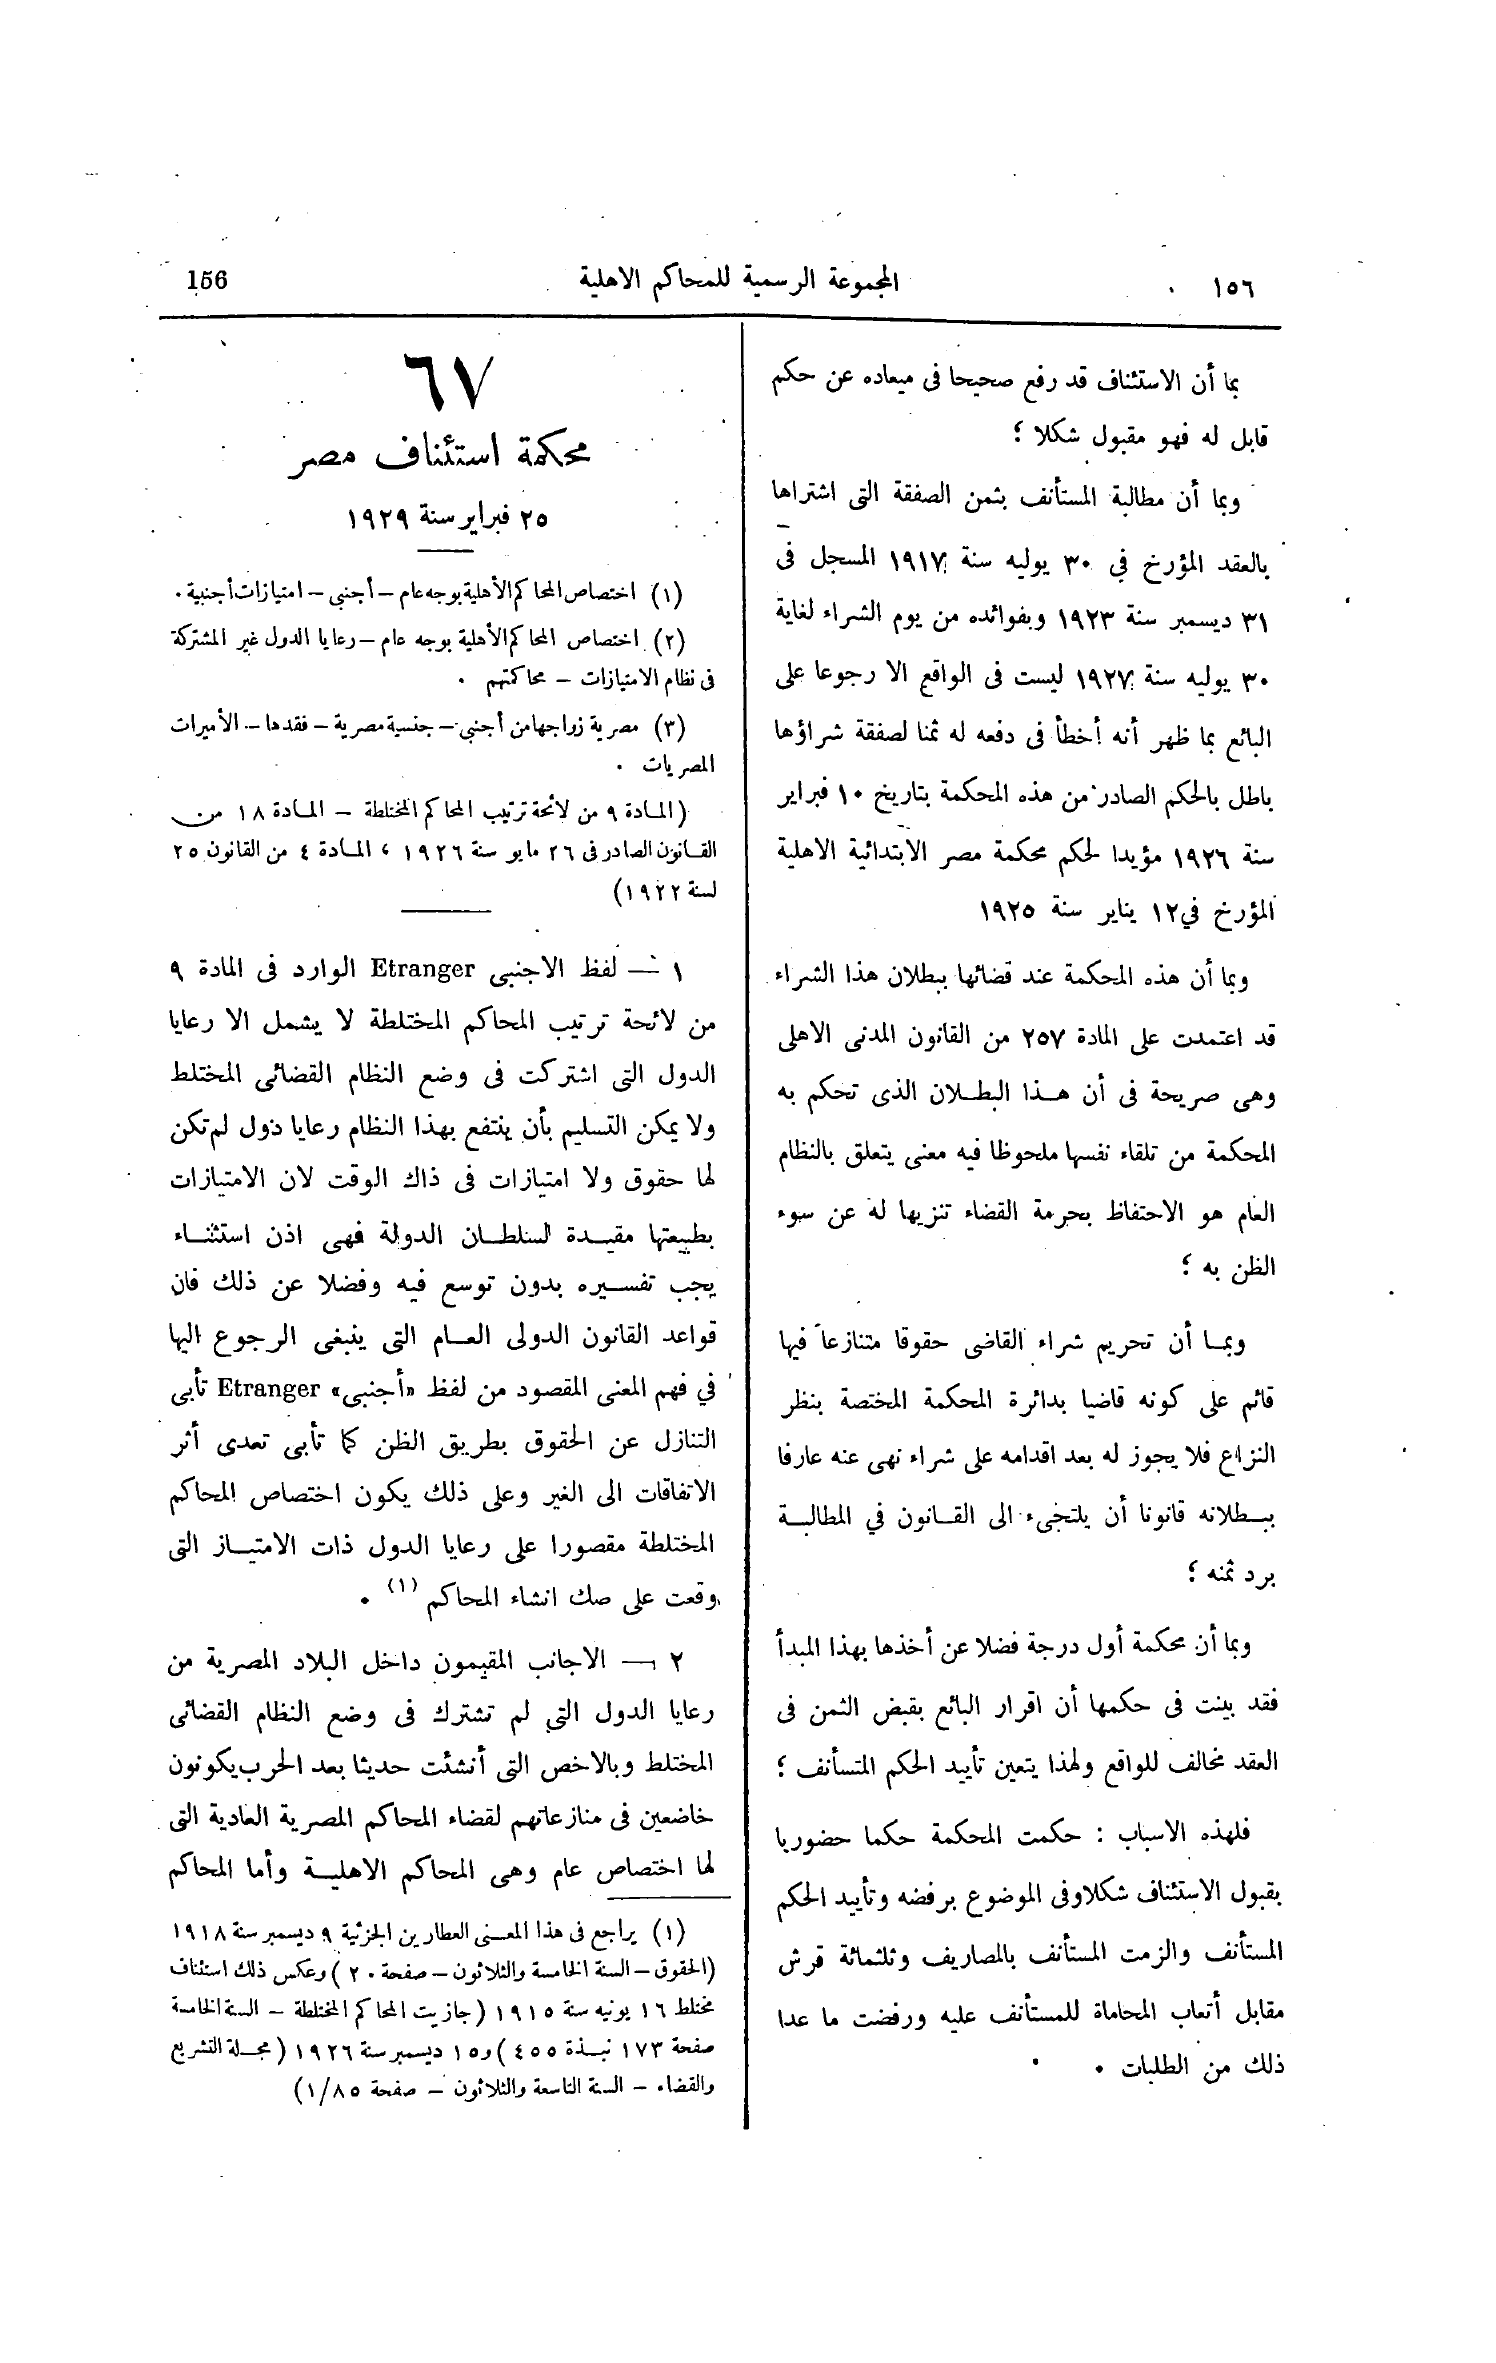 ١٥٦
المجموعة الرسمية للمحاكم الاهلية
156
بما أن الاستئناف قد رفع صحيحا فى ميعاده عن حكم
قابل له فهو مقبول شكلا ؛
وبما أن مطالبة المستأنف بثمن الصفقة التى اشتراها
بالعقد المؤرخ في ٣٠ يوليه سنة ١٩١٧ المسجل فى
٣١ ديسمبر سنة ١٩٢٣ وبفوائده من يوم الشراء لغاية
٣٠ يوليه سنة ١٩٢٧ ليست فى الواقع الا رجوعا على
البائع بما ظهر أنه أخطأ فى دفعه له ثمنا لصفقة شراؤها
باطل بالحكم الصادر من هذه المحكمة بتاريخ ١٠ فبراير
سنة ١٩٢٦ مؤيدا لحكم محكمة مصر الابتدائية الاهلية
المؤرخ في ١٢ يناير سنة ١٩٢٥
وبما أن هذه المحكمة عند قضائها ببطلان هذا الشراء
قد اعتمدت على المادة ٢٥٧ من القانون المدنى الاهلى
وهى صريحة فى أن هذا البطلان الذى تحكم به
المحكمة من تلقاء نفسها ملحوظا فيه معنى يتعلق بالنظام
العام هو الاحتفاظ بحرمة القضاء تنزيها له عن سوء
الظن به ؛
وبما أن تحريم شراء القاضى حقوقا متنازعا فيها
قائم على كونه قاضيا بدائرة المحكمة المختصة بنظر
النزاع فلا يجوز له بعد اقدامه على شراء نهى عنه عارفا
ببطلانه قانونا أن يلتجىء الى القانون في المطالبة
برد ثمنه ؛
وبما أن محكمة أول درجة فضلا عن أخذها بهذا المبدأ
فقد بينت فى حكمها أن اقرار البائع بقبض الثمن فى
العقد مخالف للواقع ولهذا يتعين تأييد الحكم المتسأنف ؛
فلهذه الاسباب : حكمت المحكمة حكما حضوريا
بقبول الاستئناف شكلا وفى الموضوع برفضه وتأييد الحكم
المستأنف والزمت المستأنف بالمصاريف وثلثمائة قرش
مقابل أتعاب المحاماة للمستأنف عليه ورفضت ما عدا
ذلك من الطلبات .
٦٧
محكمة استئناف مصر
٢٥ فبراير سنة ١٩٢٩
(١) اختصاص المحاكم الأهلية بوجه عام – أجنبى – امتيازات أجنبية .
(٢) اختصاص المحاكم الأهلية بوجه عام – رعايا الدول غير المشتركة
فى نظام الامتيازات – محاكمتهم .
(٣) مصرية زواجها من أجنبى – جنسية مصرية – فقدها – الأميرات
المصريات .
(المادة ٩ من لائحة ترتيب المحاكم المختلطة – المادة ١٨ من
القانون الصادر فى ٢٦ مايو سنة ١٩٢٦ ، المادة ٤ من القانون ٢٥
لسنة ١٩٢٢)
١ – لفظ الاجنبى Etranger الوارد فى المادة ٩
من لائحة ترتيب المحاكم المختلطة لا يشمل الا رعايا
الدول التى اشتركت فى وضع النظام القضائى المختلط
ولا يمكن التسليم بأن ينتفع بهذا النظام رعايا دول لم تكن
لها حقوق ولا امتيازات فى ذاك الوقت لان الامتيازات
بطبيعتها مقيدة لسلطان الدولة فهى اذن استثناء
يجب تفسيره بدون توسع فيه وفضلا عن ذلك فان
قواعد القانون الدولى العام التى ينبغى الرجوع اليها
في فهم المعنى المقصود من لفظ «أجنبى» Etranger تأبى
التنازل عن الحقوق بطريق الظن كما تأبى تعدى أثر
الاتفاقات الى الغير وعلى ذلك يكون اختصاص المحاكم
المختلطة مقصورا على رعايا الدول ذات الامتياز التى
وقعت على صك انشاء المحاكم (١) .
٢ – الاجانب المقيمون داخل البلاد المصرية من
رعايا الدول التى لم تشترك فى وضع النظام القضائى
المختلط وبالاخص التى أنشئت حديثا بعد الحرب يكونون
خاضعين فى منازعاتهم لقضاء المحاكم المصرية العادية التى
لها اختصاص عام وهى المحاكم الاهلية وأما المحاكم
(١) يراجع فى هذا المعنى العطارين الجزئية ٩ ديسمبر سنة ١٩١٨
(الحقوق – السنة الخامسة والثلاثون – صفحة ٢٠) وعكس ذلك استئناف
مختلط ١٦ يونيه سنة ١٩١٥ (جازيت المحاكم المختلطة – السنة الخامسة
صفحة ١٧٣ نبذة ٤٥٥) و١٥ ديسمبر سنة ١٩٢٦ (مجلة التشريع
والقضاء – السنة التاسعة والثلاثون – صفحة ١/٨٥)